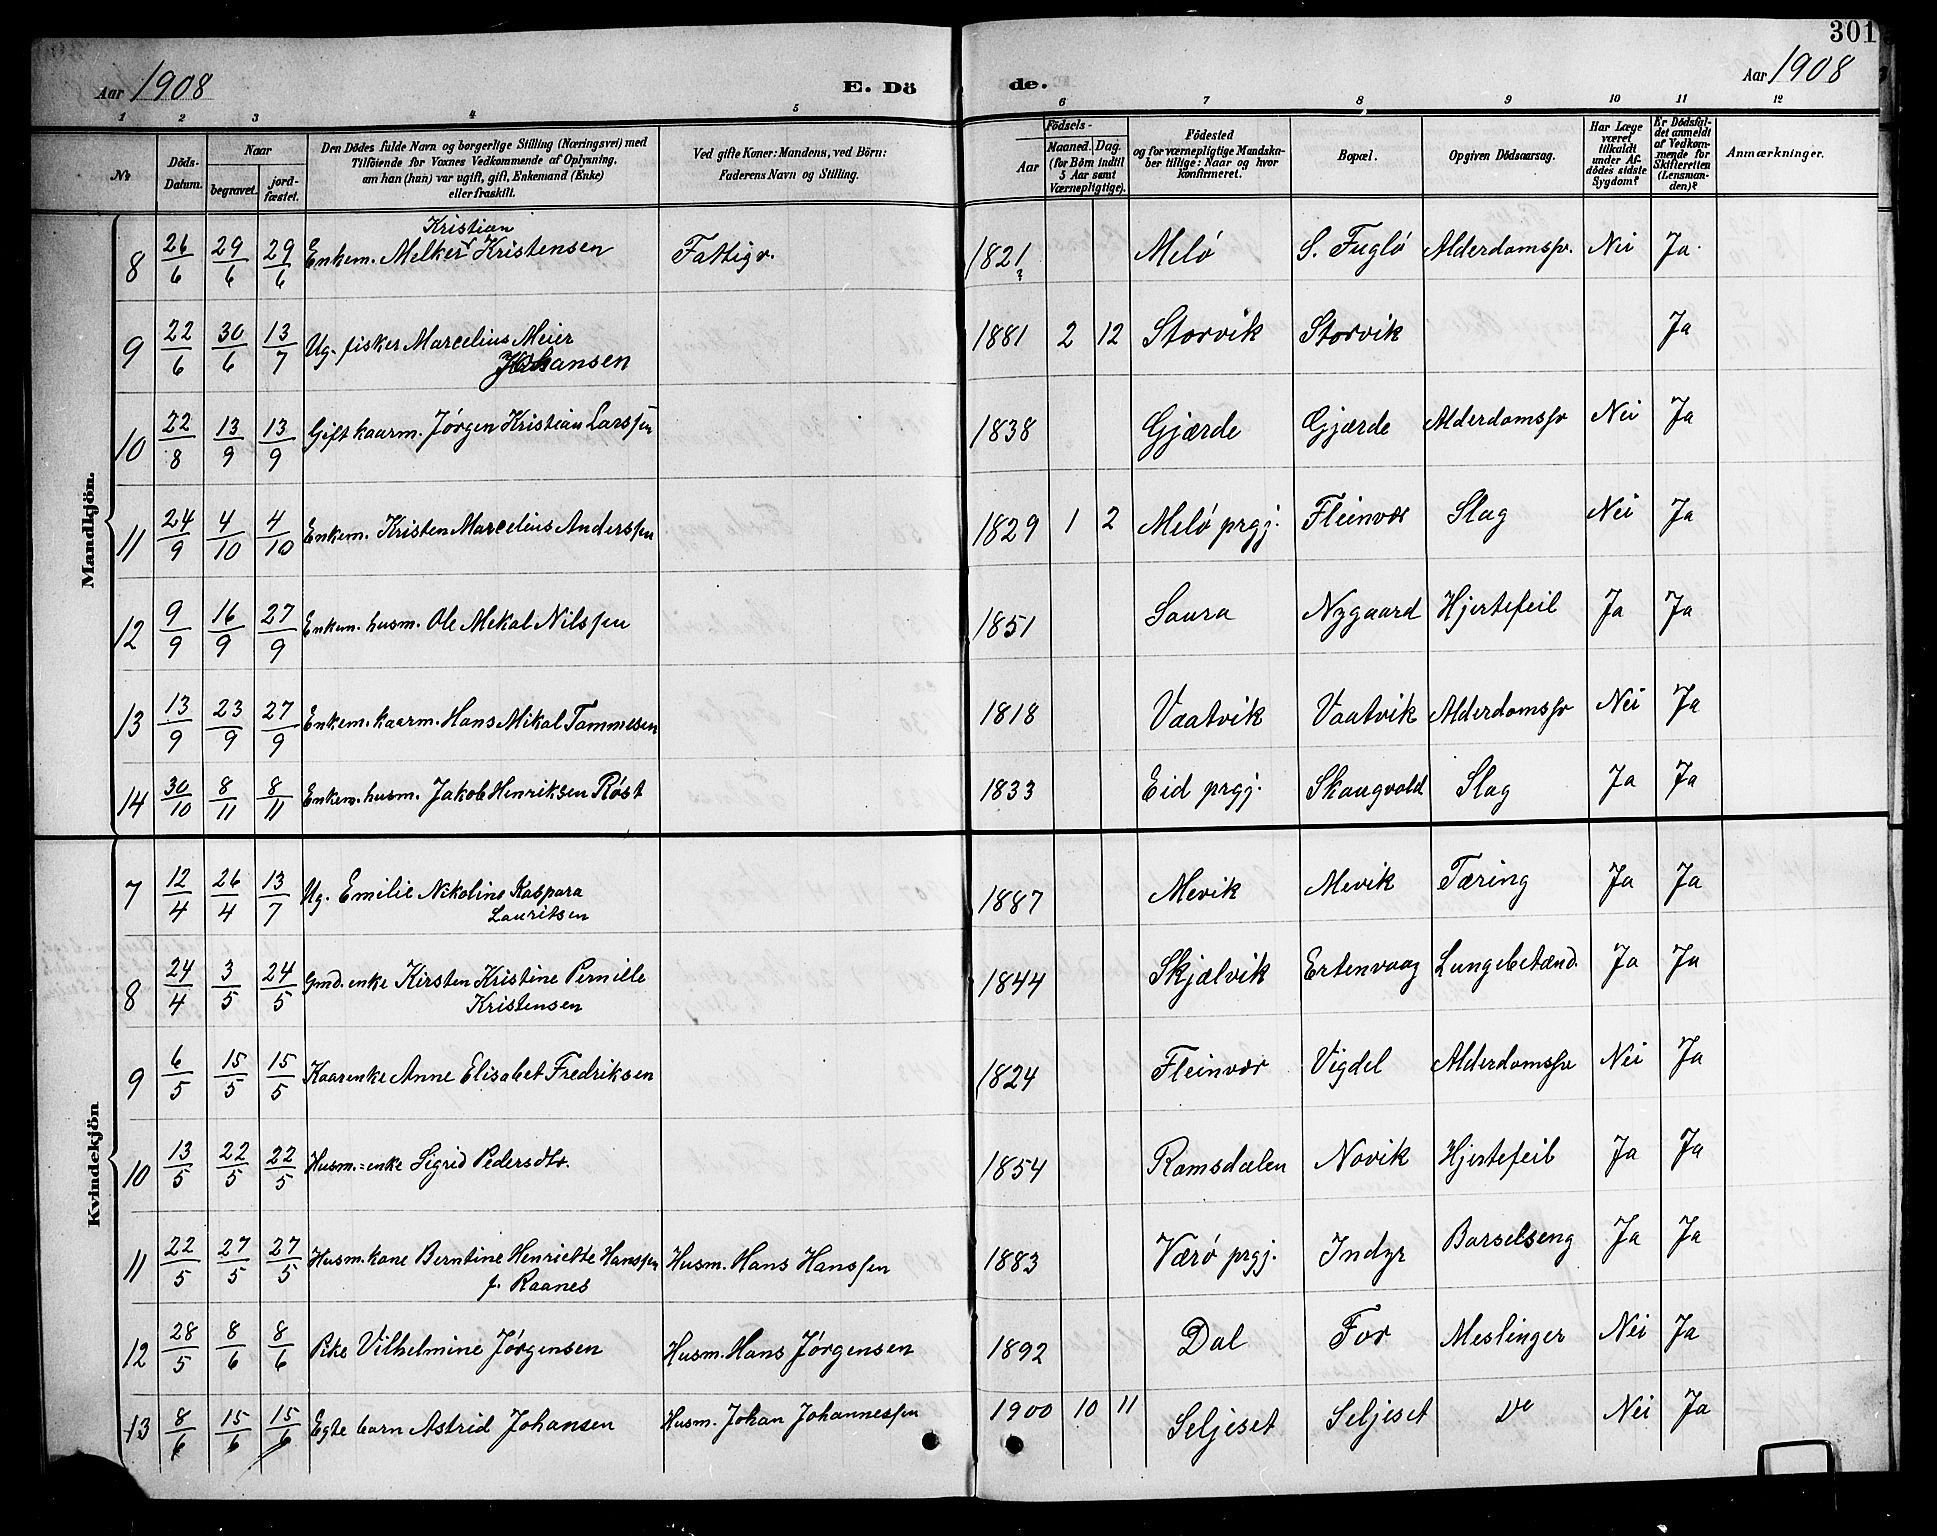 301
Aar 1908 E. Dö de. Aar 1908
1 2 3 4 5 6 7 8 9 10 11 12
No
Döds-Datum.
Naar begravet. jordfæstet.
Den Dödes fulde Navn og borgerlige Stilling (Næringsvei) med
Tilföiende for Voxnes Vedkommende af Oplysning,
om han (hun) var ugift, gift, Enkemand (Enke)
eller fraskilt.
Ved gifte Koner: Mandens, ved Börn:
Faderens Navn og Stilling.
Födsels-
Aar Maaned. Dag.
(for Börn indtil
5 Aar samt
Værnepligtige).
Födested
og for værnepligtige Mandska-
ber tillige: Naar og hvor
konfirmeret.
Bopæl.
Opgiven Dödsaarsag.
Har Læge
været
tilkaldt
under Af-
dödes sidste
Sygdom?
Er Dödsfal-
det anmeldt
af Vedkom-
mende for
Skifteretten
(Lensman-
den)?
Anmærkninger.
Mandkjön.
Kristian
8 26/6 29/6 29/6 Enkem. Melker Kristensen Fattigv. 1821? Melø S. Fuglø Alderdomssv. Nei Ja.
9 22/6 30/6 13/7 Ug. fisker Marcelius Meier 1881 2 12 Storvik Storvik Ja
Johansen
10 22/8 13/9 13/9 Gift kaarm. Jørgen Kristian Larssen 1838 Gjærde Gjærde Alderdomssv Nei Ja
11 24/9 4/10 4/10 Enkem. Kristen Marcelius Anderssen 1829 1 2 Melø prgj. Fleinvær Slag Nei Ja
12 9/9 16/9 27/9 Enkem. husm. Ole Mekal Nilssen 1851 Saura Nygaard Hjertefeil Ja Ja
13 13/9 23/9 27/9 Enkem. kaarm. Hans Mikal Tommesen 1818 Vaatvik Vaatvik Alderdomssv Nei Ja
14 30/10 8/11 8/11 Enkem. husm. Jakob Henriksen Røst 1833 Eid prgj. Skaugvold Slag Ja Ja
Kvindekjön
7 12/4 26/4 13/7 Ug. Emilie Nikoline Kaspara 1887 Mevik Mevik Tæring Ja Ja
Lauritsen
8 24/4 3/5 24/5 Gmd. enke Kirsten Kristine Pernille 1844 Skjælvik Ertenvaag Lungebetænd. Ja Ja
Kristensen
9 6/5 15/5 15/5 Kaarenke Anne Elisabet Fredriksen 1824 Fleinvær Vigdel Alderdomssv Nei Ja
10 13/5 22/5 22/5 Husm.=enke Sigrid Pedersdtr. 1854 Ramsdalen Novik Hjertefeil Ja Ja
11 22/5 27/5 27/5 Husm.kone Berntine Henriette Hanssen Husm. Hans Hanssen 1883 Værø prgj. Indyr Barselseng Ja Ja
f. Raanes
12 28/5 8/6 8/6 Pike Vilhelmine Jørgensen Husm. Hans Jørgensen 1892 Dal For Meslinger Nei Ja
13 8/6 15/6 15/6 Egte barn Astrid Johansen Husm. Johan Johannessen 1900 10 11 Seljeset Seljeset Do Nei Ja